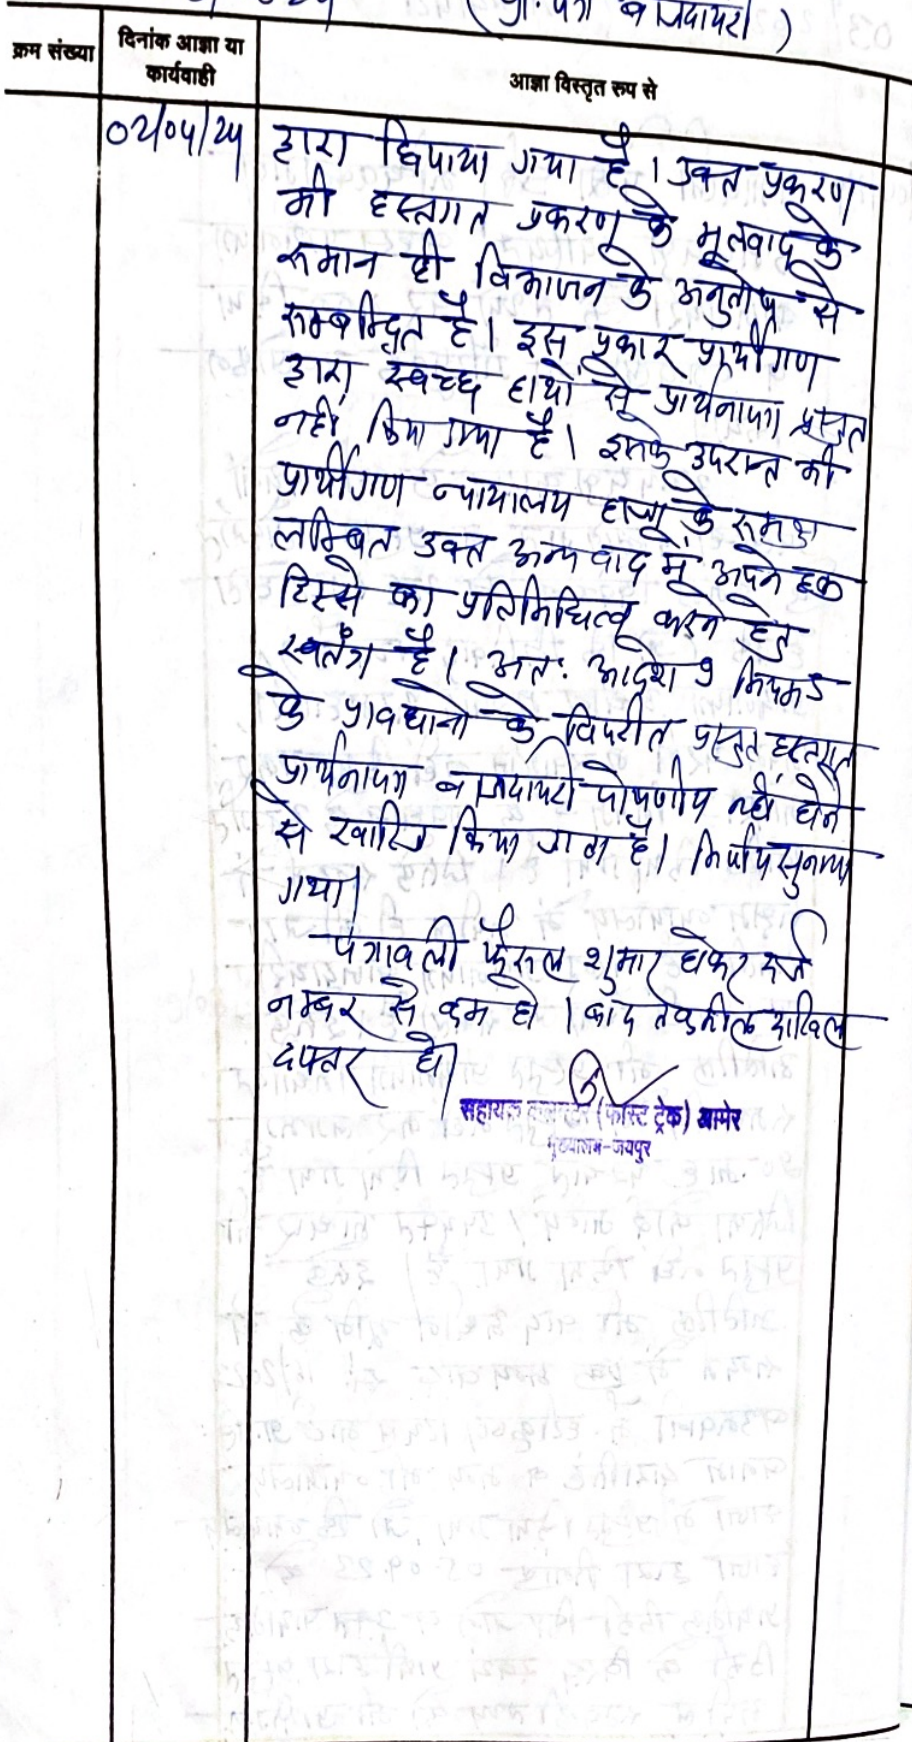 (प्रा. पत्र बाजदायरी)
क्रम संख्या
दिनांक आज्ञा या
कार्यवाही
आज्ञा विस्तृत रूप से
02/04/24
द्वारा छिपाया गया है। उक्त प्रकरण
भी हस्तगत प्रकरण के मूलवाद के
समान ही विभाजन के अनुतोष से
सम्बन्धित है। इस प्रकार प्रार्थीगण
द्वारा स्वच्छ हाथों से प्रार्थनापत्र प्रस्तुत
नहीं किया गया है। इसके उपरान्त भी
प्रार्थीगण न्यायालय हाजा के समक्ष
लम्बित उक्त अन्य वाद में अपने हक
हिस्से का प्रतिनिधित्व करने हेतु
स्वतंत्र है। अतः आदेश 9 नियम
के प्रावधानो के विपरीत प्रस्तुत हस्तगत
प्रार्थनापत्र बाजदायरी पोषणीय नहीं होने
से खारिज किया जाता है। निर्णय सुनाया
गया।
पत्रावली फैसल शुमार होकर दर्ज
नम्बर से कम हो। बाद तकमील दाखिल
दफ्तर हो।
सहायक कलक्टर (फास्ट ट्रेक) आमेर
मुख्यालय-जयपुर